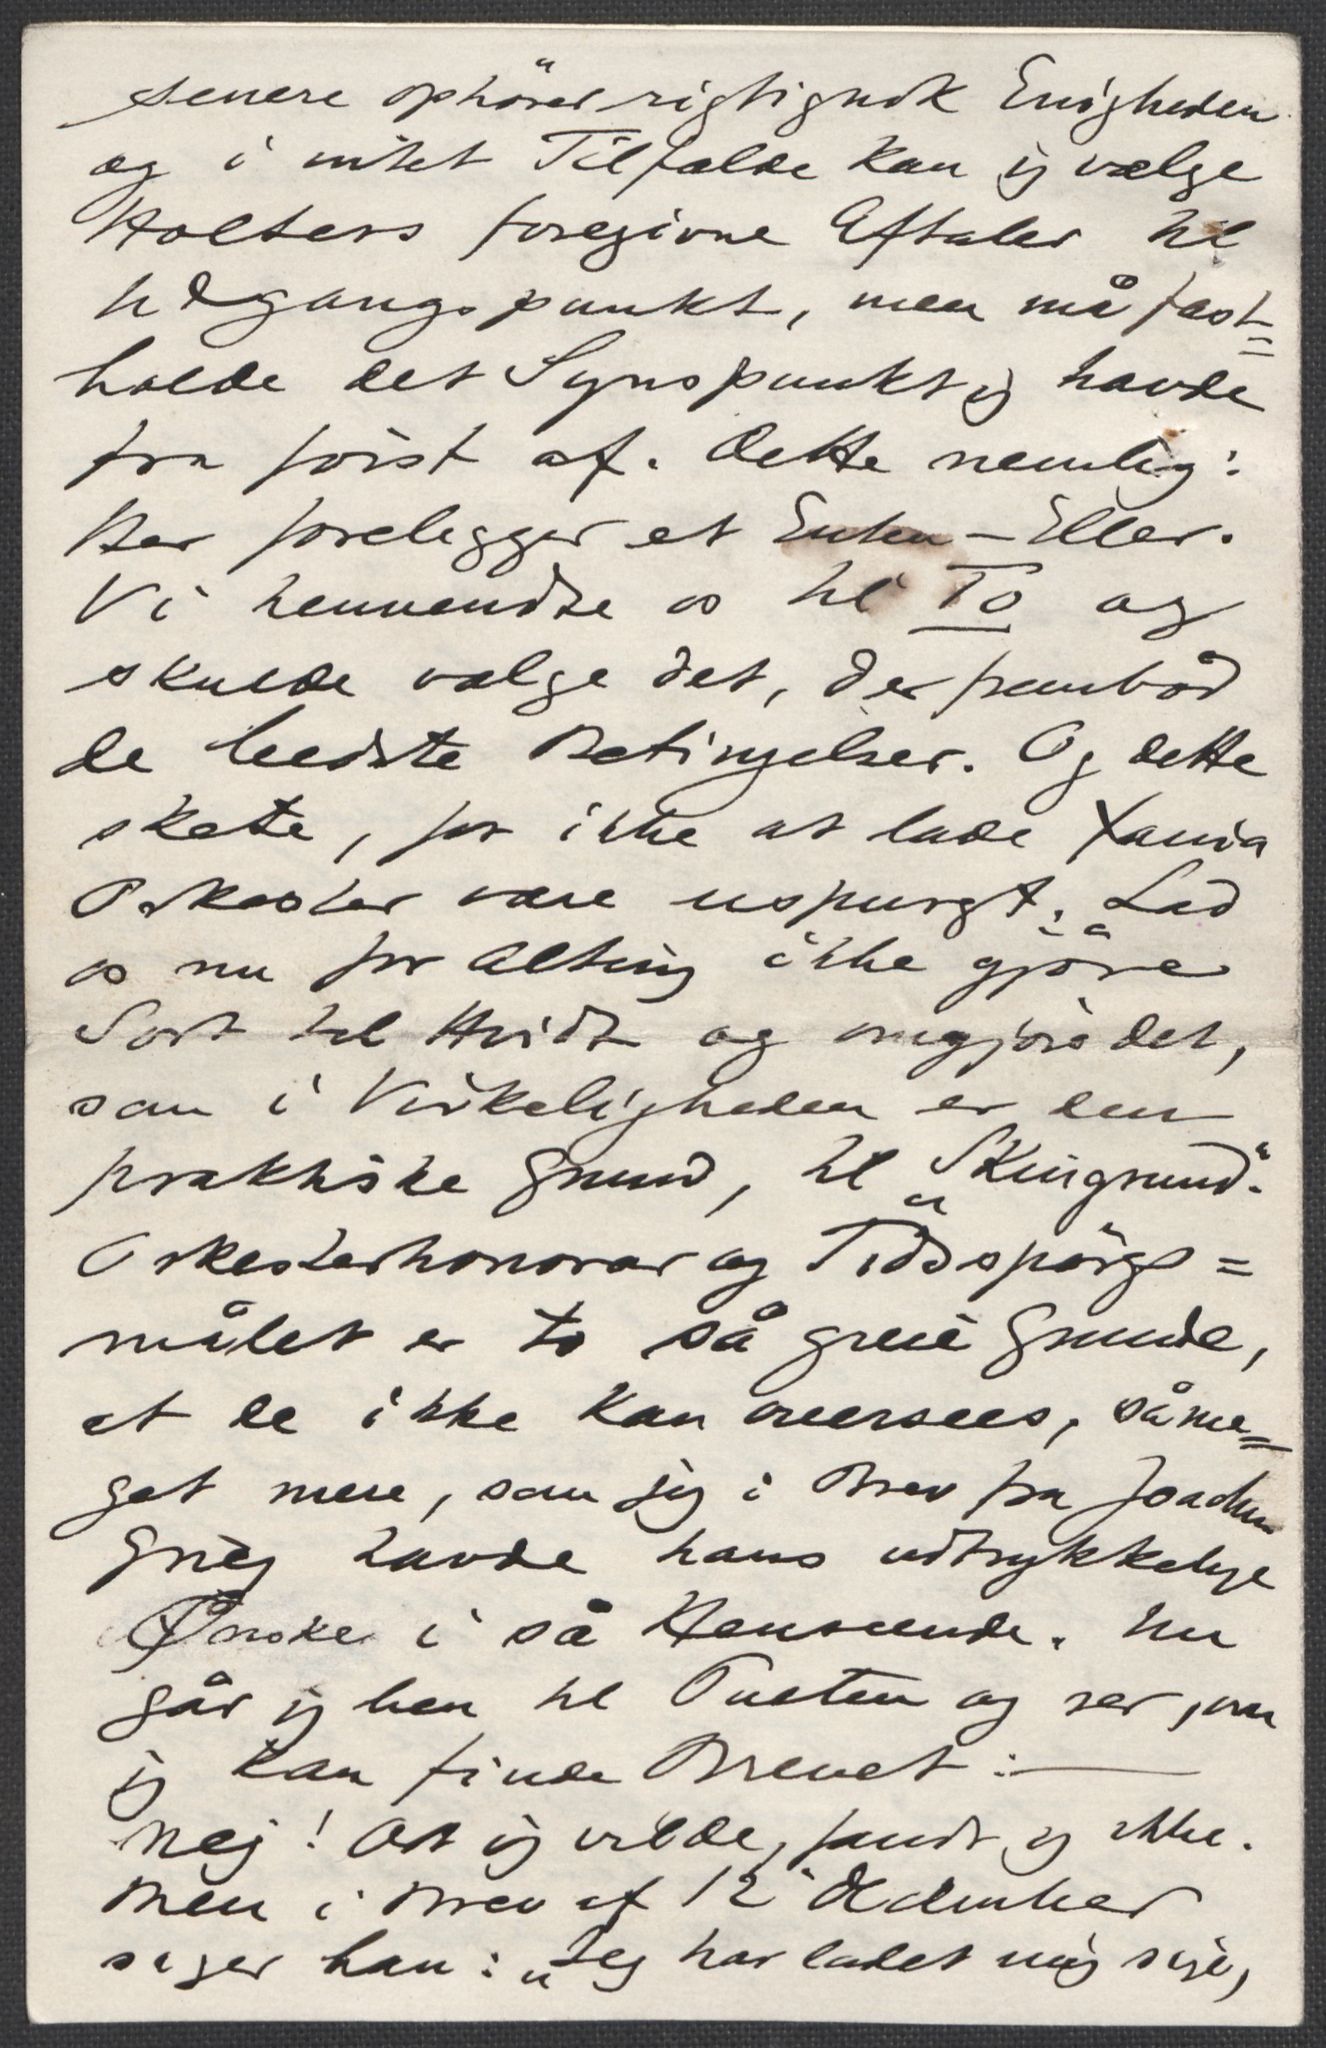 senere ophører rigtignok Enigheden
og i intet Tilfælde kan jeg vælge
Holters foregivne Aftaler til
Udgangspunkt, men må fast=
holde det Synspunkt jeg havde
fra først af. Dette nemlig:
Her forelegger et Enten – Eller.
Vi henvendte os til To og
skulde vælge det, der frembød
de bedste Betingelser. Og dette
skete, for ikke at lade Xania
Orkester være uspurgt. Lad
os nu for Alting ikke gjøre
Sort til Hvidt og omgjøre det,
som i Virkeligheden er den
praktiske Grund, til „Skingrund“.
Orkesterhonorar og Tidsspørgs=
målet er to så greie Grunde,
at de ikke kan oversees, såme=
get mere, som jeg i Brev fra Joachim
Grieg havde hans udtrykkelige
Ønske i så Henseende. Nu
går jeg hen til Pulten og ser, om
jeg kan finde Brevet: —
Nej! Det jeg vilde, fandt jeg ikke.
Men i Brev af 12 December
siger han: „Jeg har ladet mig sige,